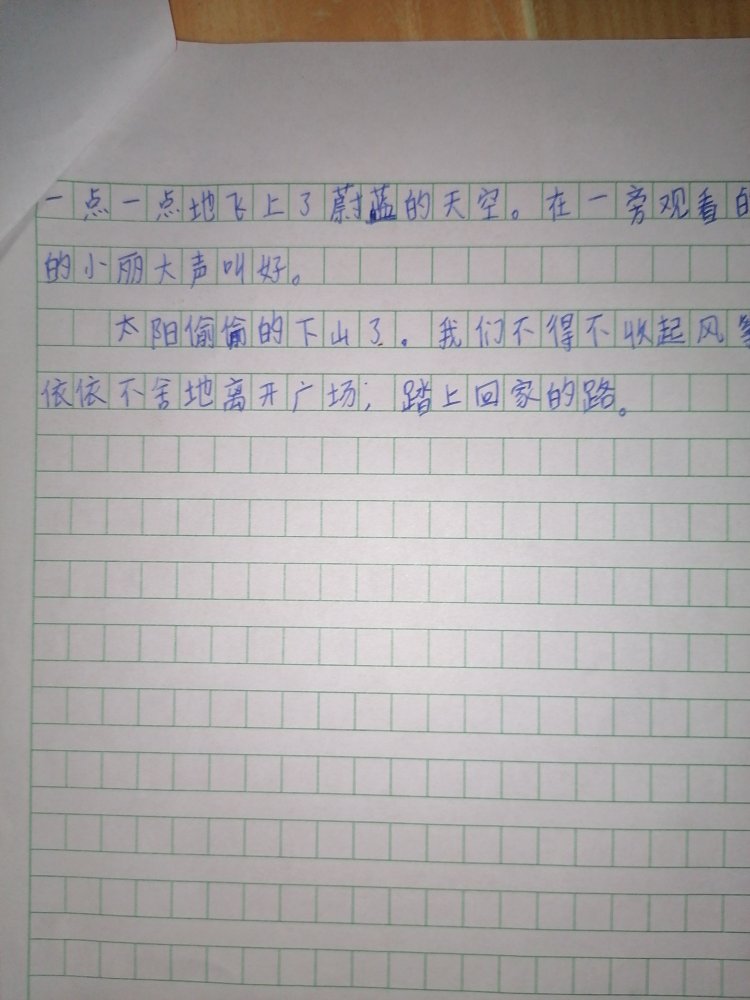 一点一点地飞上了蔚蓝的天空。在一旁观看的
的小丽大声叫好。
太阳偷偷的下山了。我们不得不收起风筝
依依不舍地离开广场，踏上回家的路。